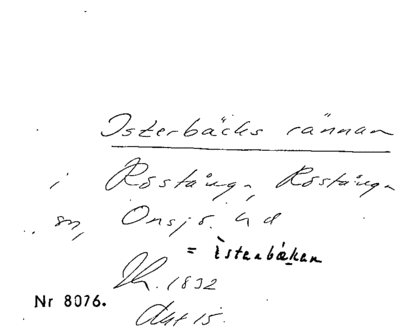 Isterbäcks rännan
i Röstånga, Röstånga
sn, Onsjö hd
= istarbäken
Lh. 1832
Akt 15.
Nr 8076.